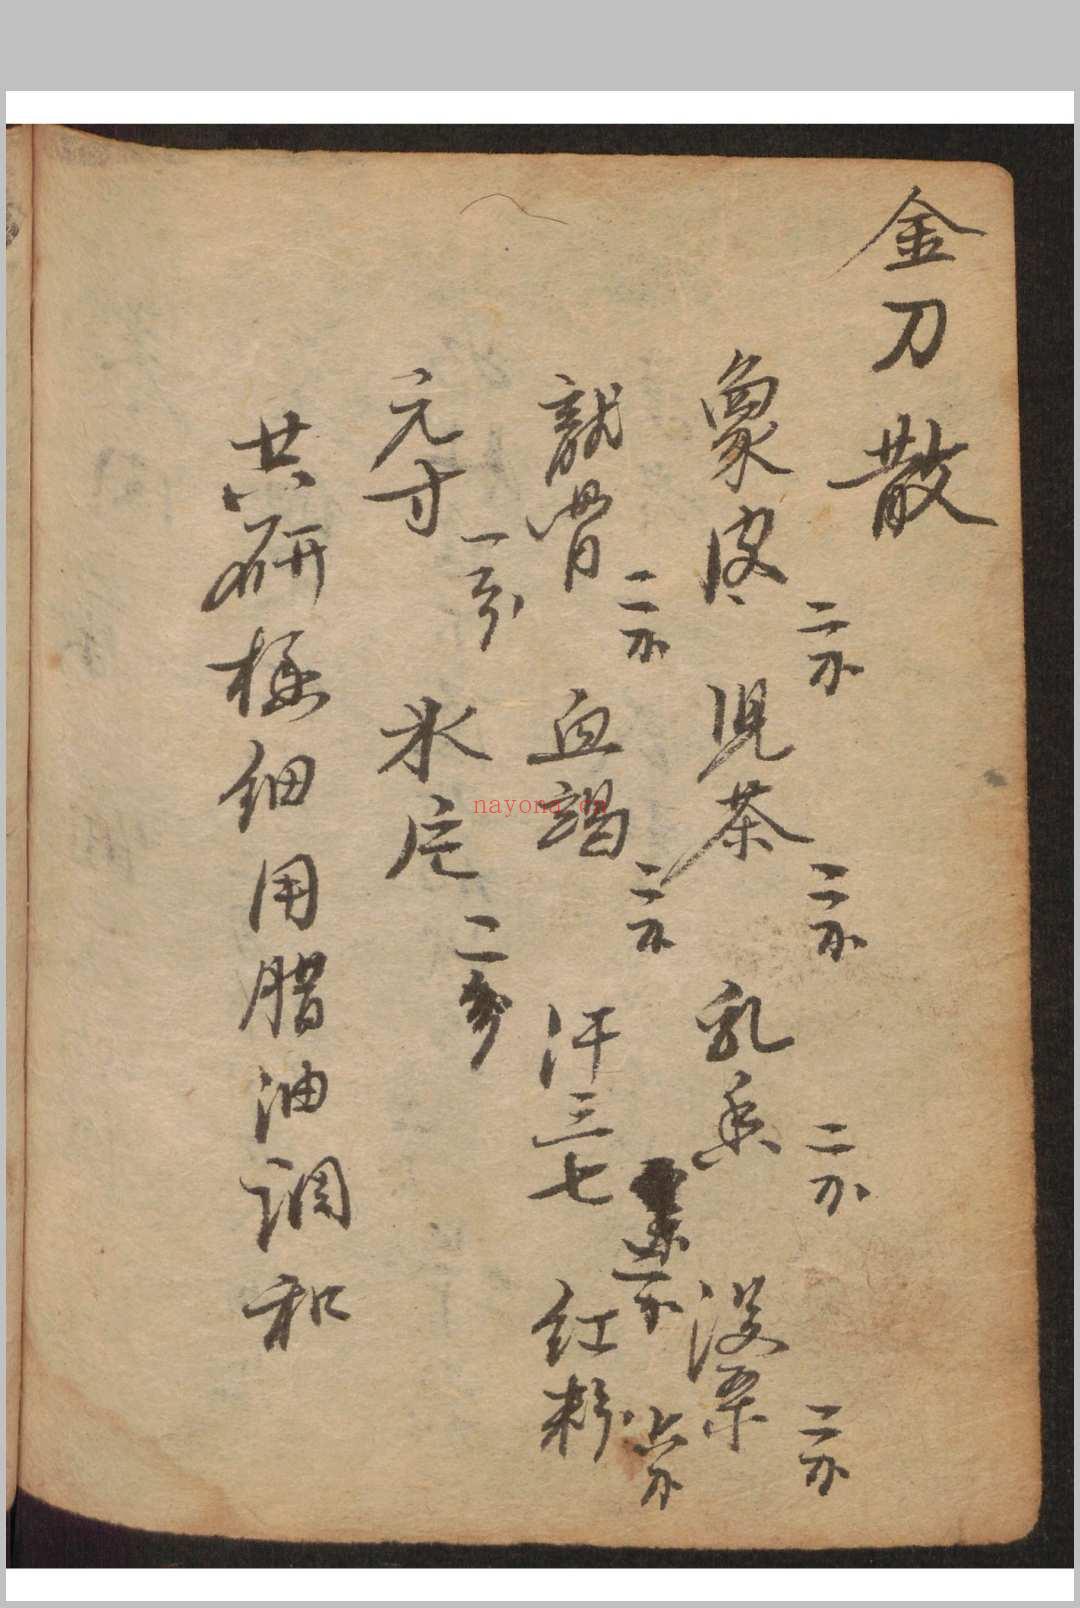 金刀散
象皮 二不 児茶 二不 乳香 二不 没藥 二不
龍骨 二不 血竭 二不 汗三七 二不 红粉 不
元寸 一分 氷片 二分
共研極细用腊油调和
nayona.cn